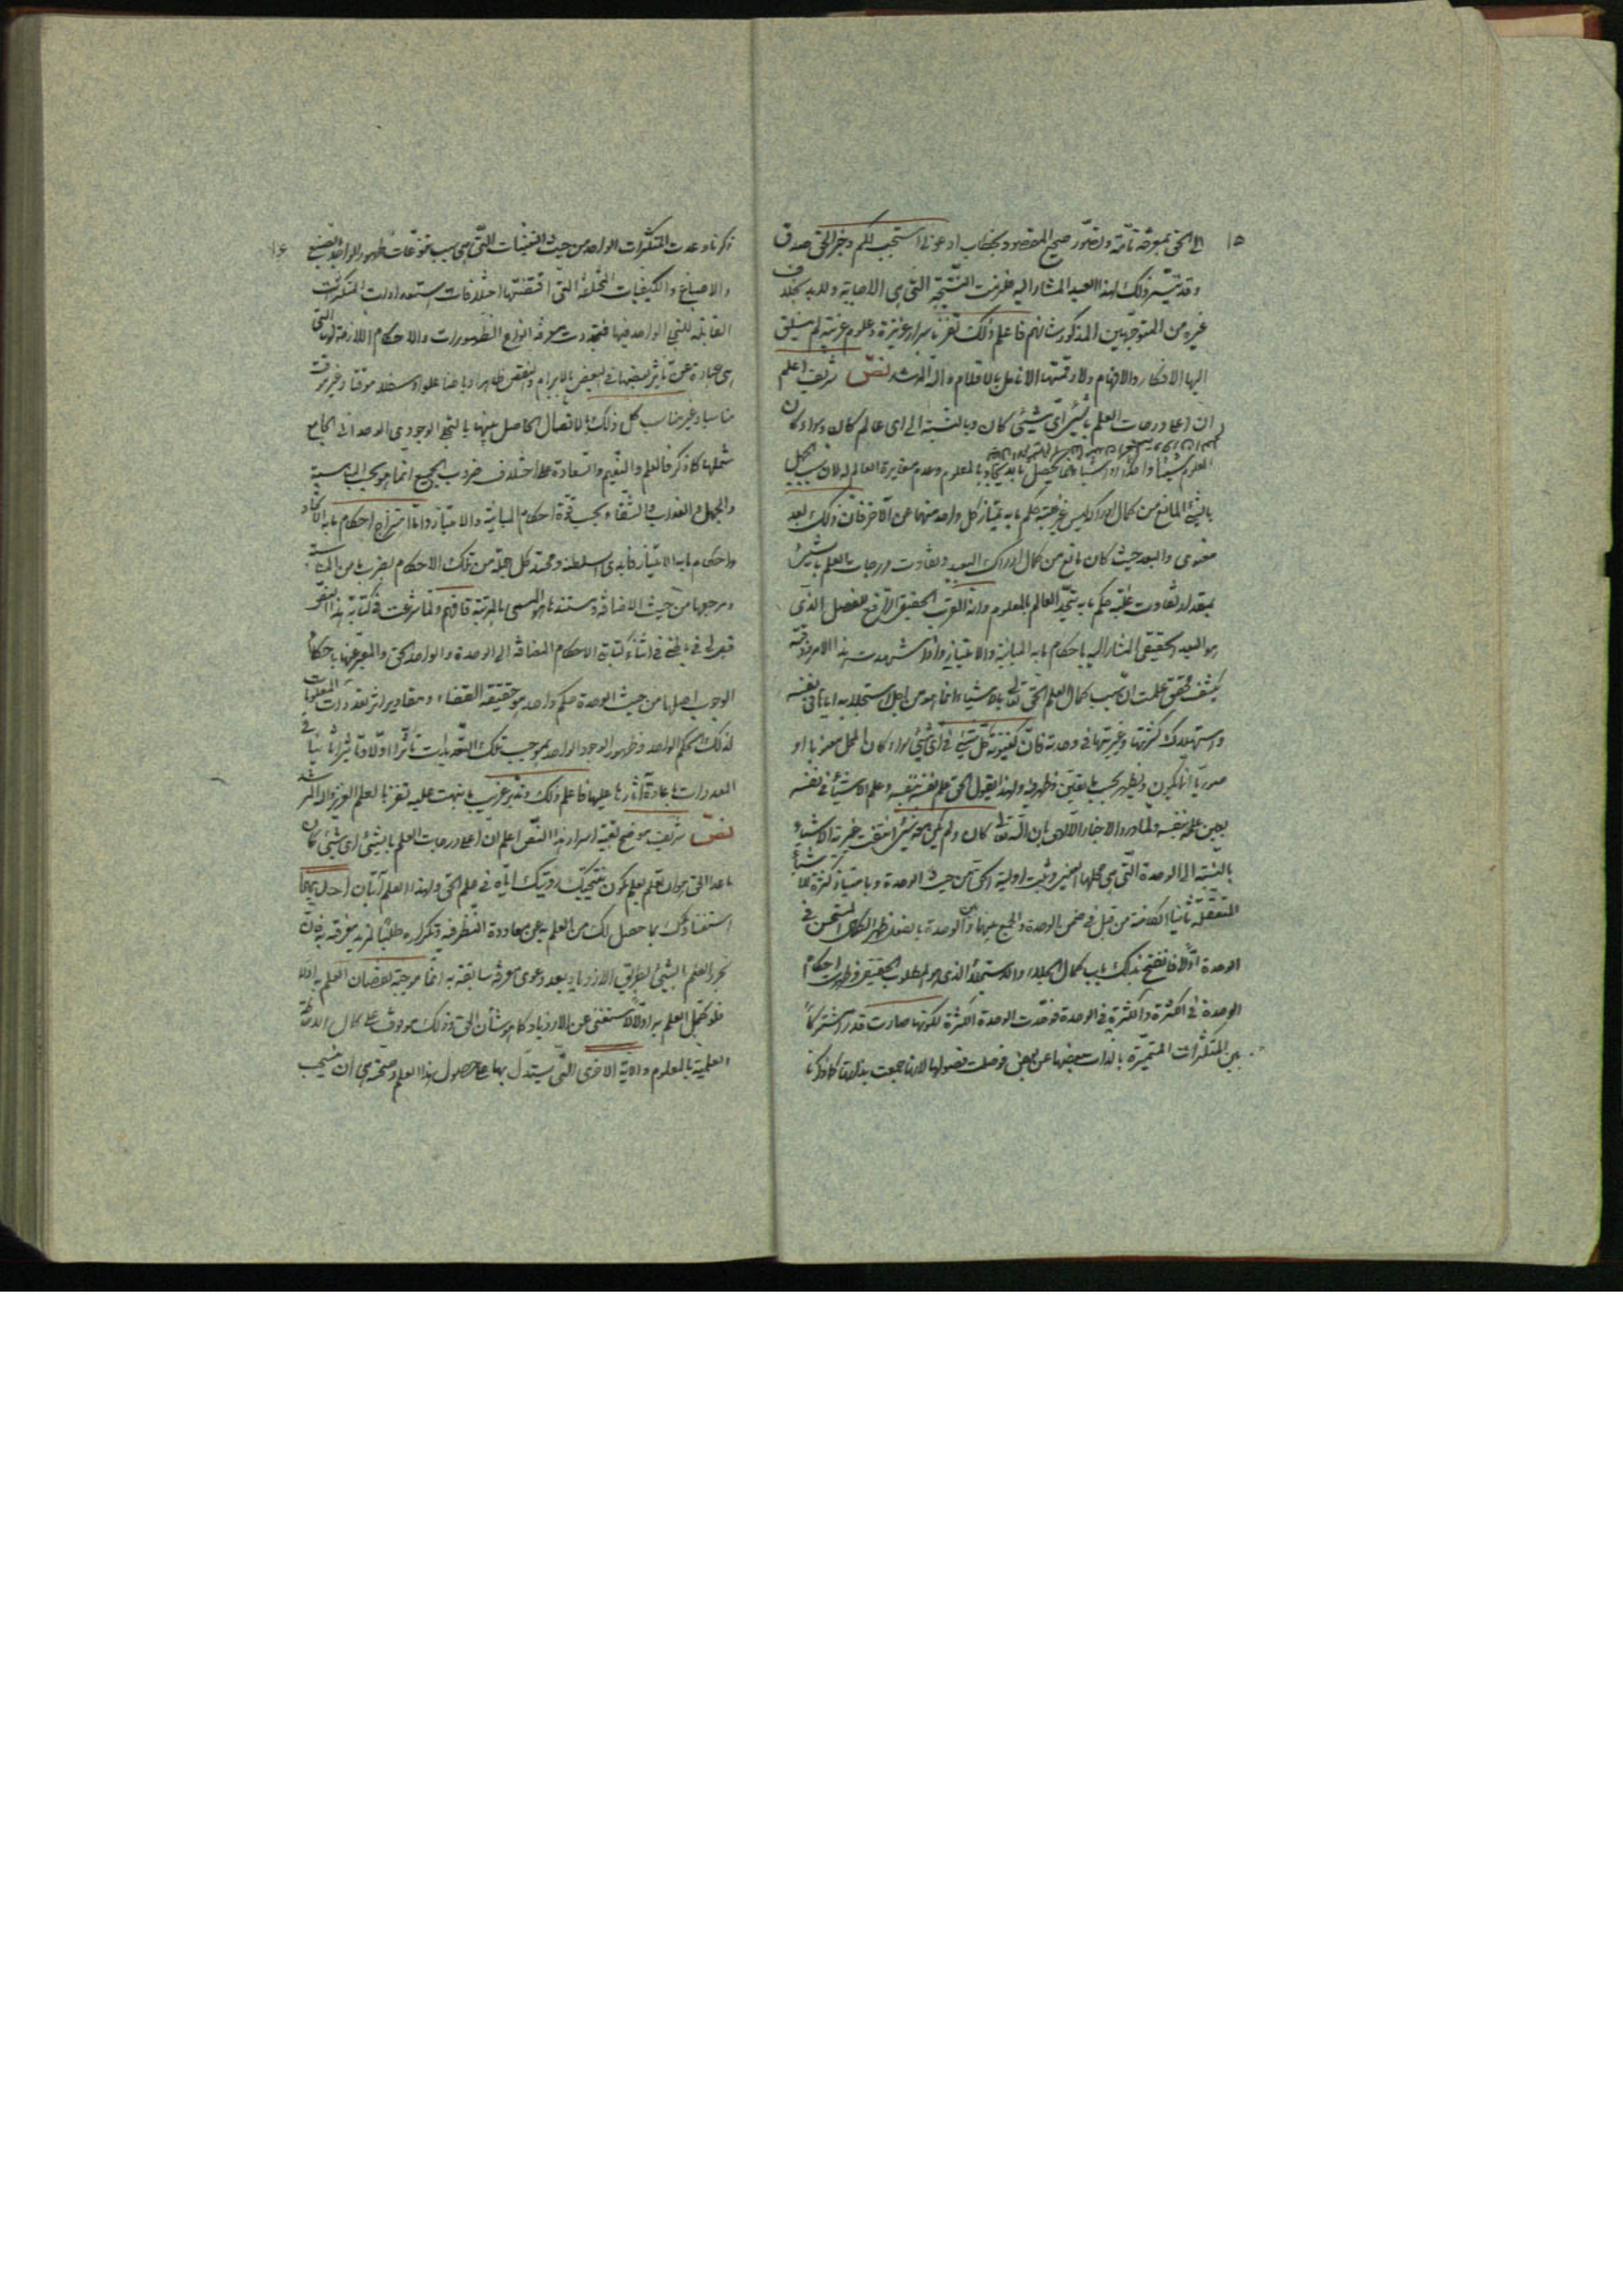 ١٥
الى الحق بمعرفة تامة وتصور صحيح المقصود بخطاب ادعوني استجب لكم وخبر الحق صدق
وقد تيسر ذلك لهذا العبد المشار اليه فلزمت النتيجة التي هي الاجابة ولا بد بخلاف
غيره من المتوجهين المذكور شانهم فاعلم ذلك تفز باسرار عزيزة وعلوم غريبة لم ينسلق
اليها الافكار والافهام ولا رقمتها الانامل بالاقلام والله المرشد نص شريف اعلم
ان اعلا درجات العلم بالشيء اي شيء كان وبالنسبة الى اي عالم كان وسواء كان
المعلوم شيئا واحدا او اشياء انما يحصل بالاتحاد بالمعلوم وعدم مغايرة العالم له لان سبب الجهل
بالشيء المانع من كمال ادراكه ليس غير غلبة حكم ما به يمتاز كل واحد منهما عن الآخر فان ذلك بعد
معنوى والبعد حيث كان مانع من كمال ادراك البعيد وتفاوت درجات العلم بالشيء
بمقدار تفاوت غلبة حكم ما به يتحد العالم بالمعلوم وانه القرب الحقيقي الرافع للفصل الذي
هو البعد الحقيقي المشار اليه باحكام ما به المباينة والامتياز واذا شهدت هذا الامر وذقته
بكشف محقق علمت ان سبب كمال العلم الحق تعالى بالاشياء انما هو من اجل استجلائه اياها في نفسه
واستهلاك كثرتها وغيريتها في وحدته فان كينونة كل شيء في اي شيء سواء كان المحل معنويا او
صوريا انما يكون ويظهر بحسب ما تعين وظهر فيه ولهذا نقول الحق علم نفسه بنفسه وعلم الاشياء في نفسه
بعين علمه بنفسه ولما ورد الاخبار الالهي بان الله تعالى كان ولم يكن معه شيء انتفت غيرية الاشياء
بالنسبة الى الوحدة التي هي محلها المغير وثبت اولية الحق من حيث الوحدة وبامتياز كثرة الاشياء
المتعقلة ثانيا الكامنة من قبل في ضمن الوحدة والجمع بينها وبين الوحدة بالفعل ظهر الكمال المستجن في
الوحدة اولا فانفتح بذلك باب كمال الجلاء والاستجلاء الذي هو المطلوب الحقيقي فظهرت احكام
الوحدة في الكثرة والكثرة في الوحدة فوحدت الوحدة الكثرة لكونها صارت قدرا مشتركا
بين المتكثرات المتميزة بالذات بعضها عن بعض فوصلت فصولها لانها جمعت بذاتها كما ذكرنا
١٦
ذكرنا وعددت المتكثرات الواحد من حيث التعينات التي هي سبب تنوعات ظهور الواحد بالصبغ
والاصباغ والكيفيات المختلفة التي اقتضتها اختلافات استعدادات المتكثرات
القابلة للتجلي الواحد فيها فتجددت معرفة انواع الظهورات والاحكام اللازمة لها التي
هي عبارة عن تأثير بعضها في البعض بالابرام والنقض ظاهرا وباطنا علوا وسفلا موقتا وغير موقت
مناسبا وغير مناسب كل ذلك بالاتصال الحاصل بينها بالتجلي الوجودي الوحداني الجامع
شملها كما ذكر فالعلم والنعيم والسعادة على اختلاف ضروب الجميع انما هو بحسب المناسبة
والجهل والعذاب والشقاء بحسب قوة احكام المباينة والامتياز واما امتزاج احكام ما به الاتحاد
واحكام ما به الامتياز فابدى سلطنة ومحتد كل جملة من تلك الاحكام بضرب ما من المناسبة
ومرجعها من حيث الاضافة ومستندها هو المسمى بالمرتبة فافهم ولما شرعت في كتابة هذا النص
قيل لي في باطني في اثناء كتابتي الاحكام المضافة الى الوحدة والواحد الحق والمعبر عنها باحكام
الوجوب اصلها من حيث الوحدة حكم واحد هو حقيقة القضاء ومقادير اثر تعددات المعلومات
لذلك الحكم الواحد وظهور الوجود الواحد بموجب تلك التعددات تأثرا اولا وتأثيرا ثانيا في
المعددات باعادة آثارها عليها فاعلم ذلك وتدبر غريب ما نبهت عليه تفز بالعلم العزيز والله المرشد
نص شريف موضح بقية اسرار هذا النص اعلم ان اعلا درجات العلم بالشيء اي شيء كان
ما عدا الحق هو ان تعلم بعلم يكون نتيجتك رؤيتك اياه في علم الحق ولهذا العلم آيتان احديهما
استغناؤك بما حصل لك من العلم به عن معاودة النظر فيه وتكراره طلبا لمزيد معرفة به فان
تجدد العلم بالشيء بطريق الازدياد بعد دعوى معرفة سابقة به انما موجبه نقصان العلم به اولا
فلو كمل العلم به اولا لاستغنى عن الازدياد كما هو شأن الحق وذلك موقوف على كمال الاحاطة
العلمية بالمعلوم والآية الاخرى التي يستدل بها على حصول هذا العلم وصحته هي ان ينسحب